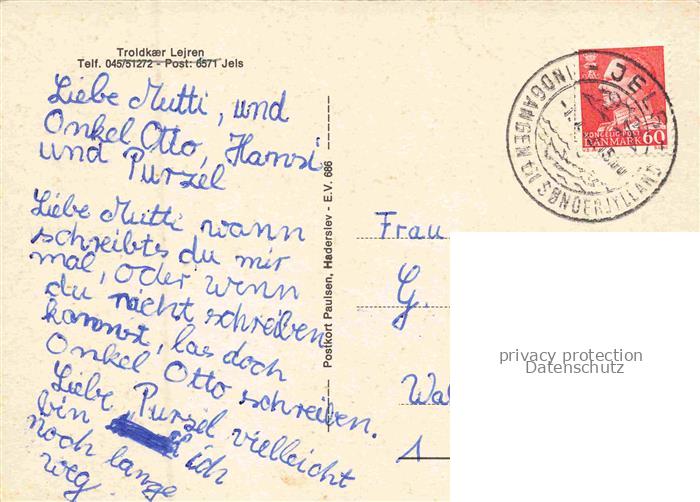 Troldkær Lejren
Telf. 045/51272 - Post: 6571 Jels
Liebe Mutti, und
Onkel Otto, Hansi
und Purzel
Liebe Mutti wann
schreibts du mir
mal, oder wenn
du nicht schreiben
kannst, las doch
Onkel Otto schreiben.
Liebe Purzel vielleicht
bin ich
noch lange
weg.
Postkort Paulsen, Haderslev - E.V. 686
JELS
INDGANGEN TIL SØNDERJYLLAND
KONGELIG POST
DANMARK 60
Frau
G.
Wal
1
privacy protection
Datenschutz